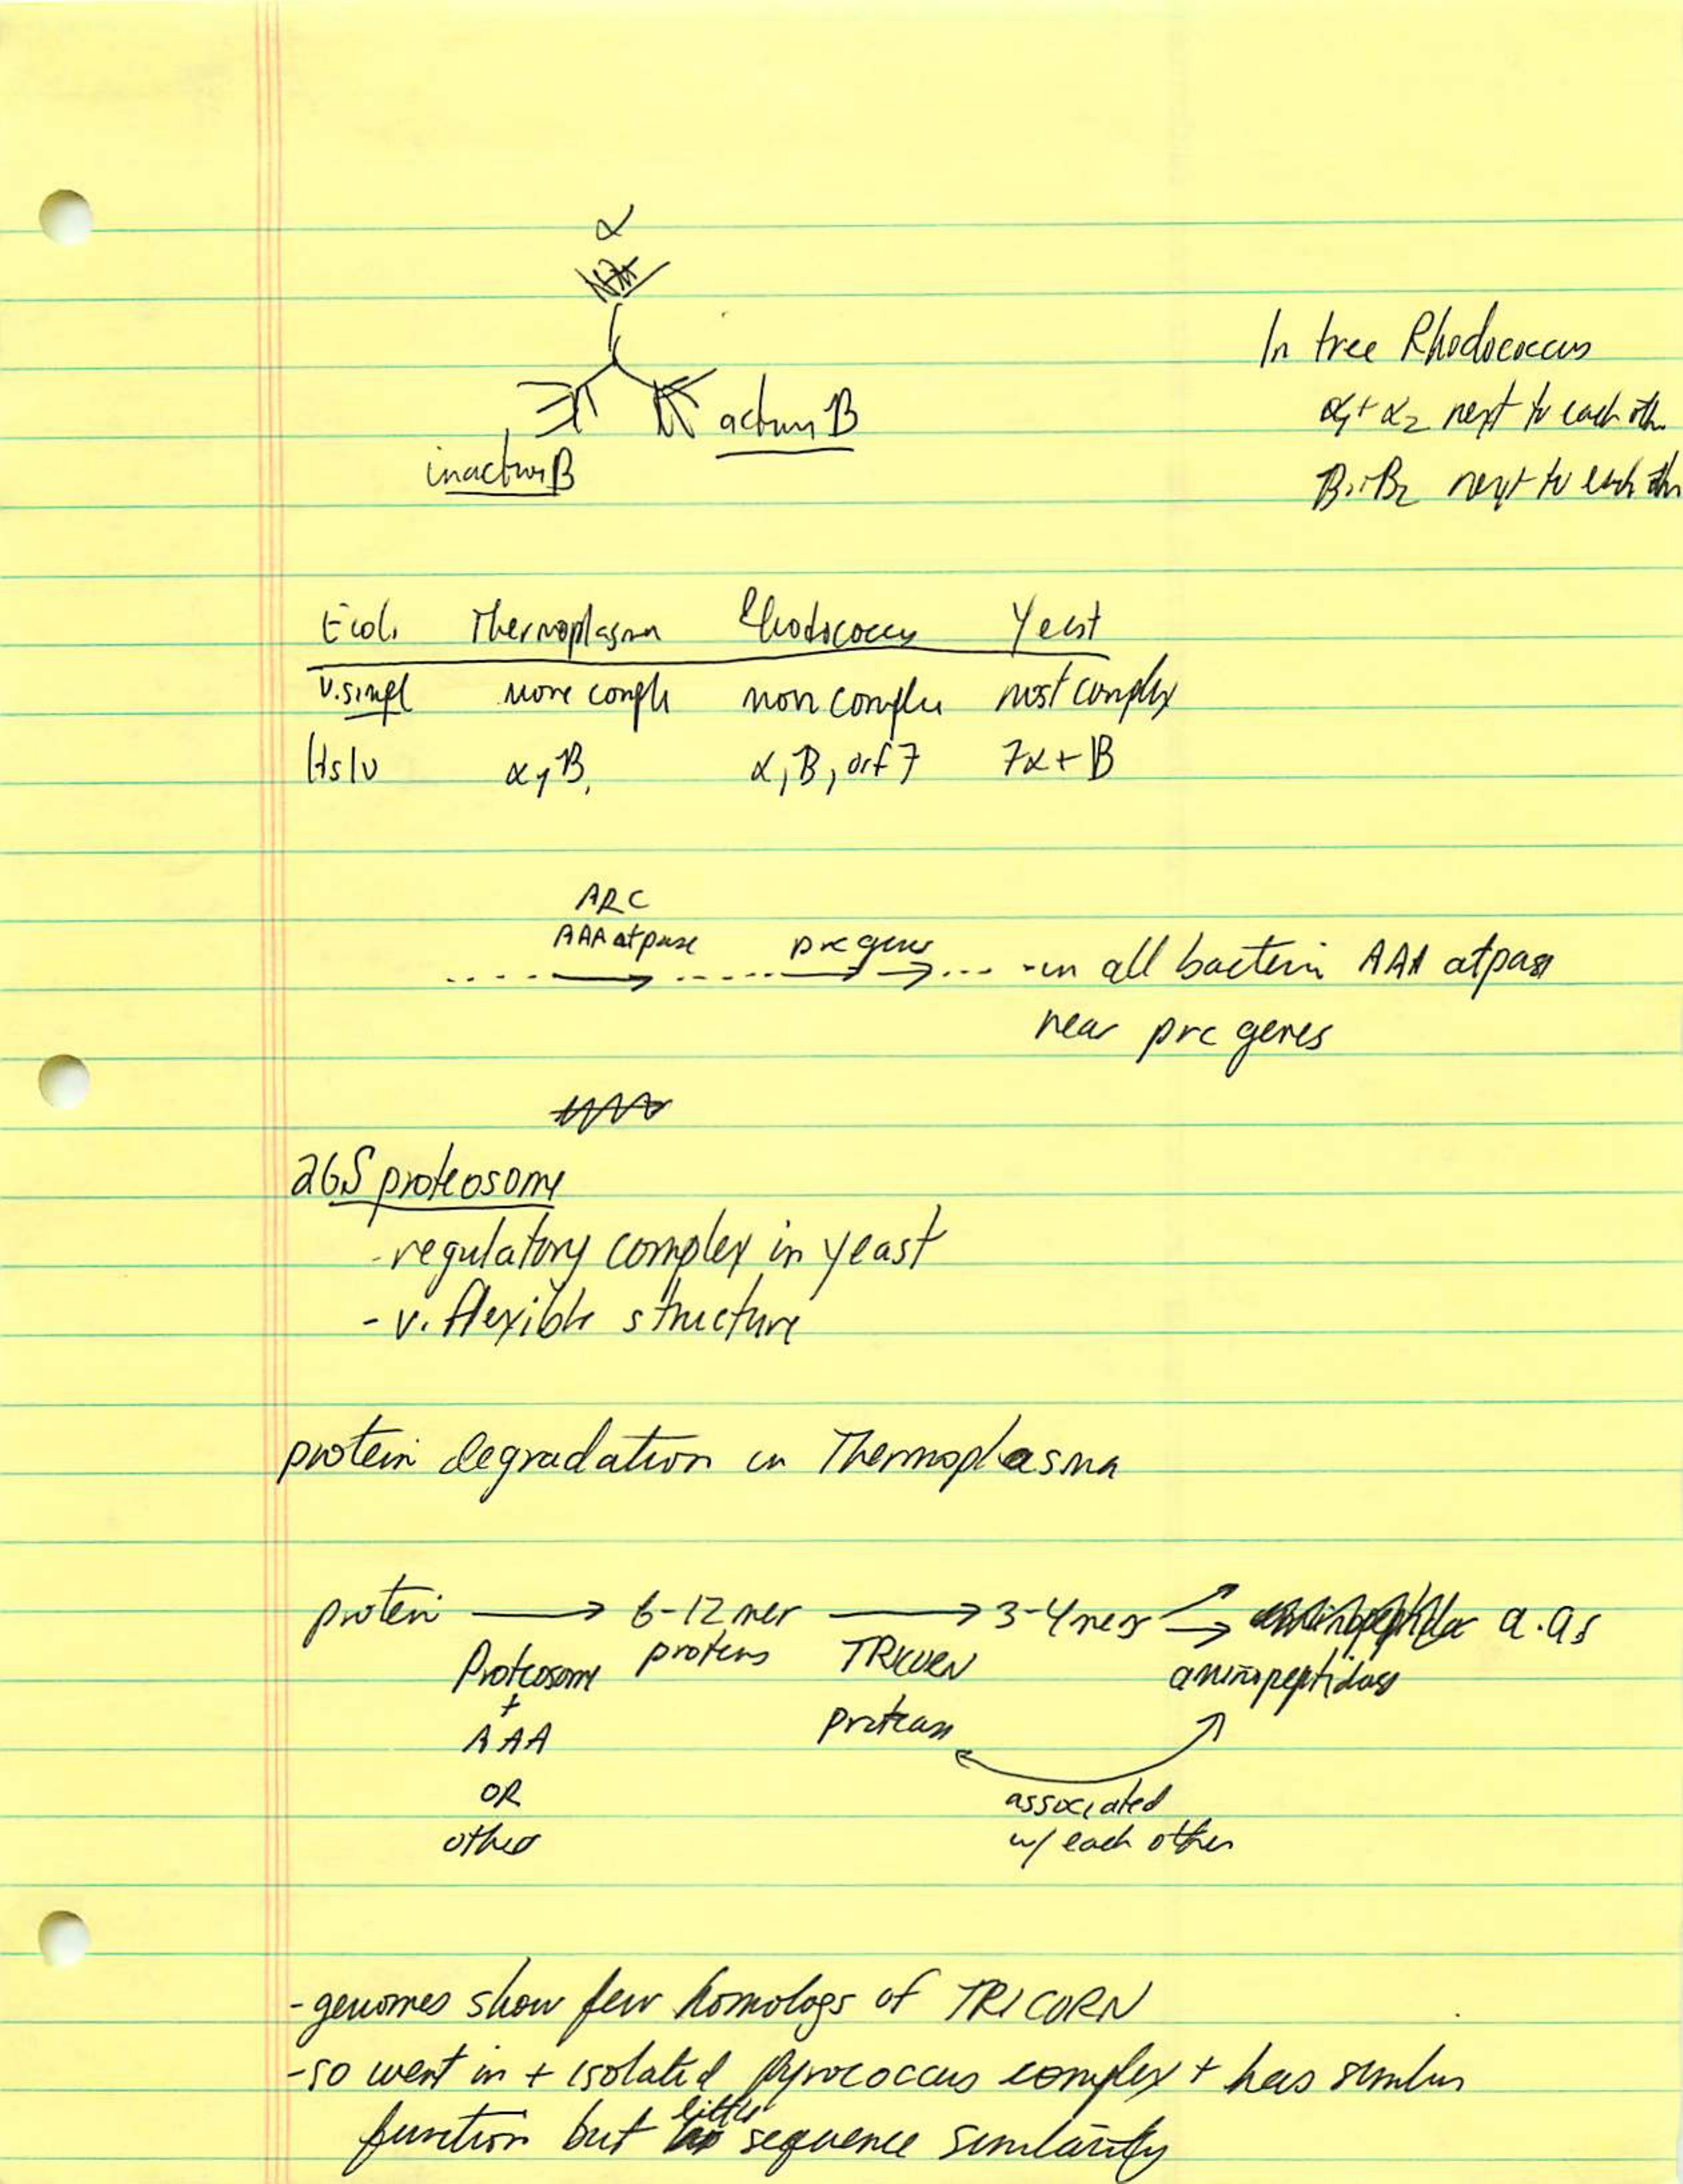 α
In tree Rhodococcus
α1 + α2 next to each oth
active B
inactive B
B1 + B2 next to each oth
E coli Thermoplasma Rhodococcus Yeast
v. simpl more compl more complex most complex
Hslv α, B, α, B, orf 7 7α + B
ARC
AAA atpase prc genes
- in all bacteria AAA atpase
near prc genes
26S proteosome
- regulatory complex in yeast
- v. flexible structure
protein degradation in Thermoplasma
protein → 6-12 mer → 3-4 mers → a.as
Proteosome proteins TRICORN aminopeptidase
+
AAA protease
OR associated
other w/ each other
- genomes show few homologs of TRICORN
- so went in + isolated pyrococcus complex + has similar
little
function but sequence similarity